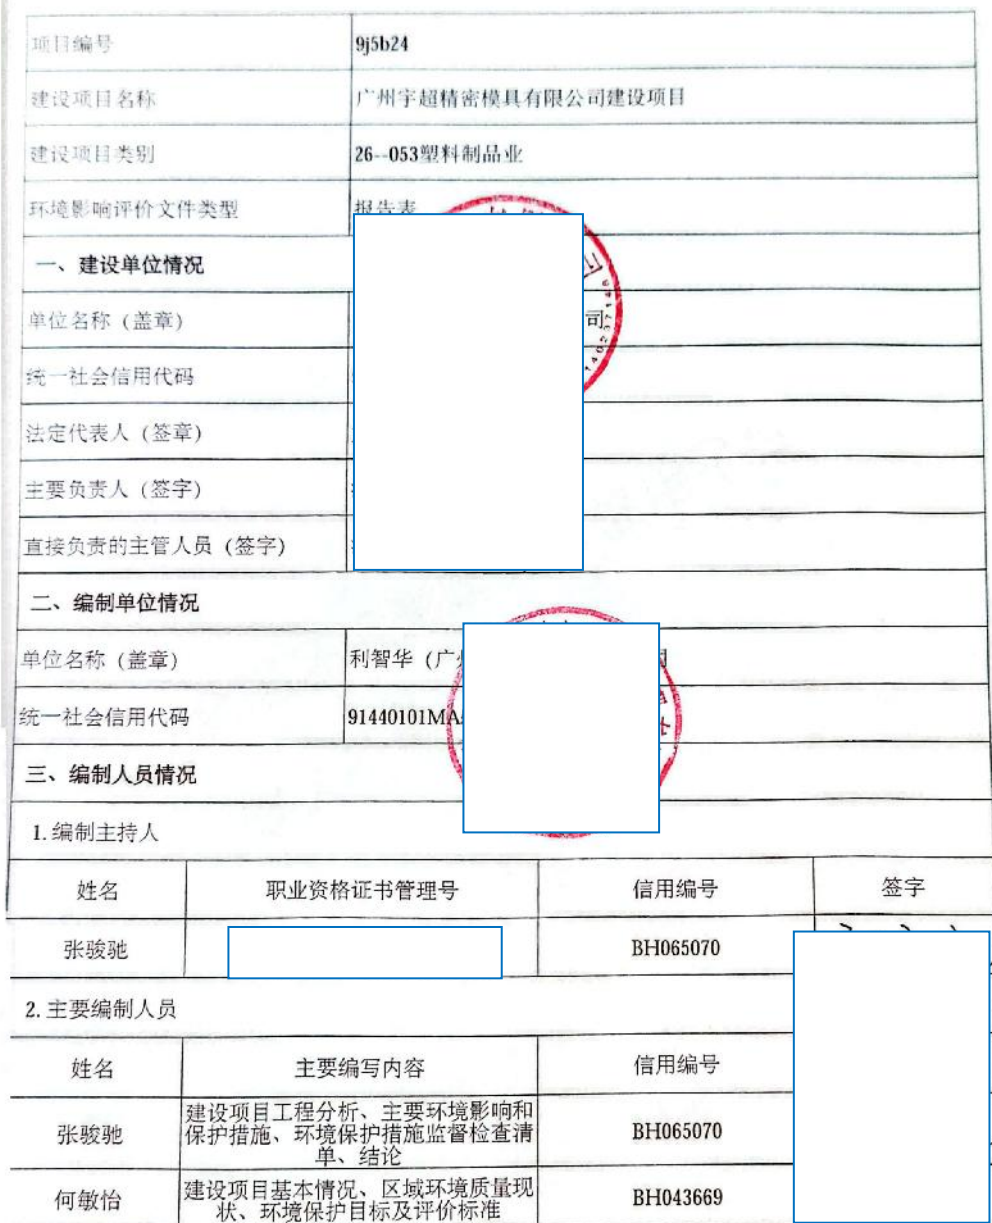 项目编号 9j5b24
建设项目名称 广州宇超精密模具有限公司建设项目
建设项目类别 26--053塑料制品业
环境影响评价文件类型 报告表
一、建设单位情况
单位名称（盖章） 司
统一社会信用代码
法定代表人（签章）
主要负责人（签字）
直接负责的主管人员（签字）
二、编制单位情况
单位名称（盖章） 利智华（广
统一社会信用代码 91440101MA
三、编制人员情况
1.编制主持人
姓名 职业资格证书管理号 信用编号 签字
张骏驰 BH065070
2.主要编制人员
姓名 主要编写内容 信用编号
张骏驰 建设项目工程分析、主要环境影响和 BH065070
保护措施、环境保护措施监督检查清
单、结论
何敏怡 建设项目基本情况、区域环境质量现 BH043669
状、环境保护目标及评价标准